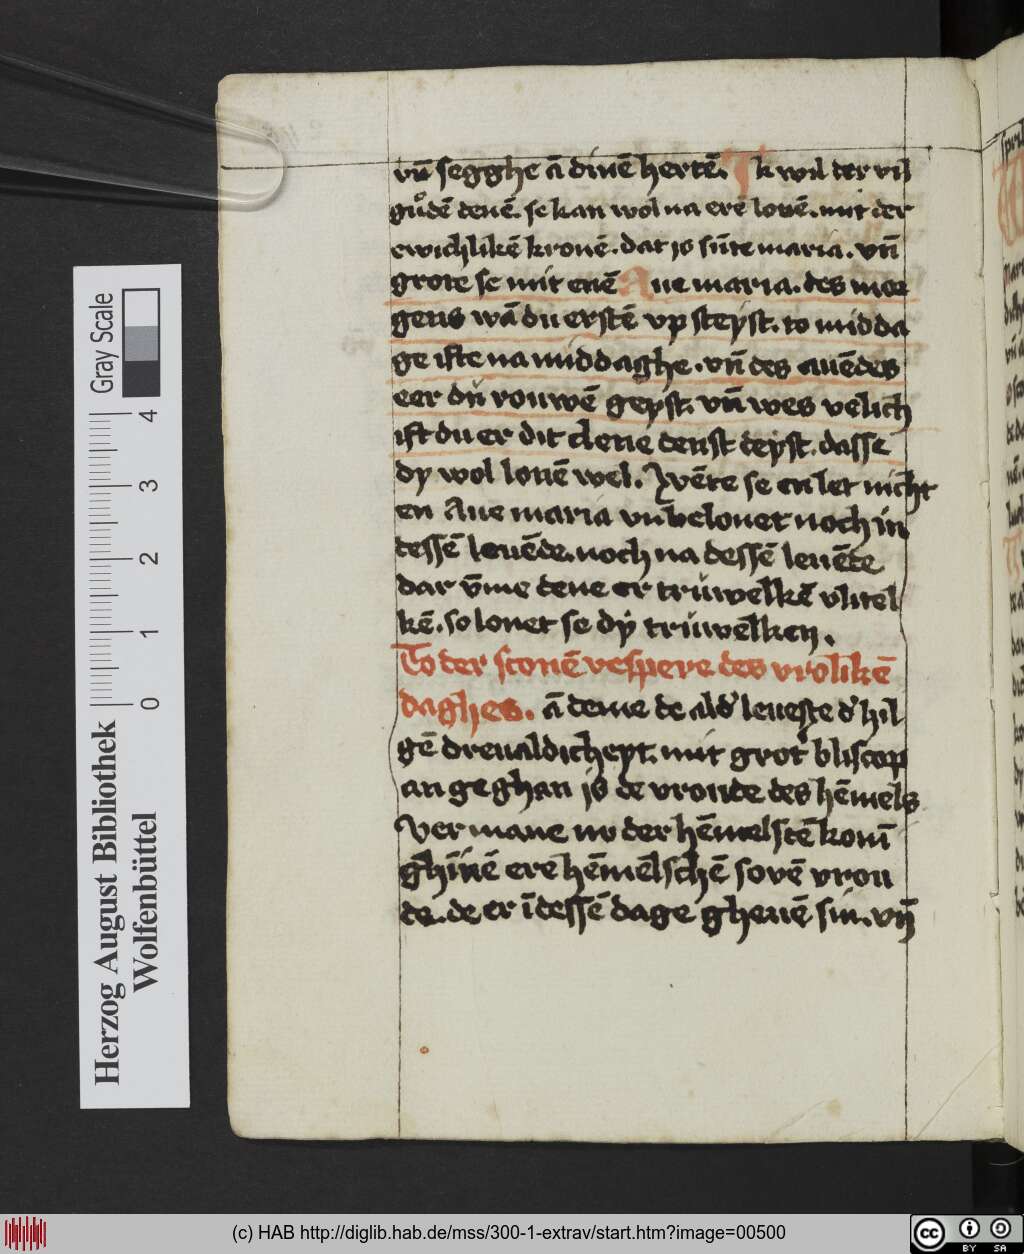 vn̄ segghe ā dinē hertē. Ik wil der vil
gůdē denē. se kan wol na erē lonē. mit der
ewichlikē kronē. dat is sūte maria. vn̄
grote se mit enē Aue maria. des mor
gens wā du erstē vp steyst. to midda
ge ifte na middaghe. vn̄ des auēdes
eer du rouwē geyst. vn̄ wes velich
ift du er dit clene denst deyst. dasse
dy wol lonē wel. Wēte se en let nicht
en Aue maria vnbelonet noch in
dessē leuēde. noch na dessē leuēde
dar v̄me dene er truwelkē vlitel
kē. so lonet se dy truwelken.
To der sconē vespere des vrolikē
daghes. ā deme de ald' leueste d' hil
gē dreualdicheyt. mit grot' bliscop
an geghan is de vroude des hēmels
Vermane nv der hēmelstē konī
ghinē ere hēmelschē sovē vrou
de. de er ī dessē dage gheuē sin. vn̄
Gray Scale
0 1 2 3 4
Herzog August Bibliothek
Wolfenbüttel
(c) HAB http://diglib.hab.de/mss/300-1-extrav/start.htm?image=00500
cc BY SA